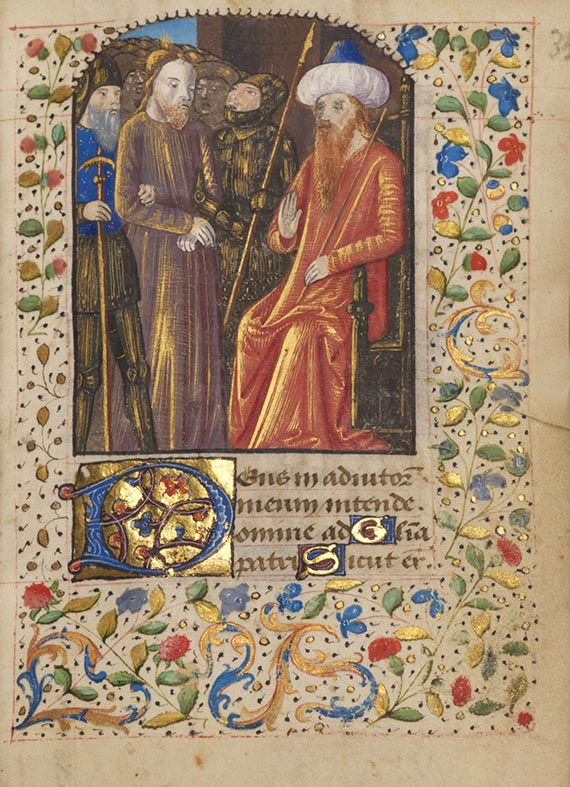 Deus in adiutor
meum intende
omine ad Gl̄ia
patri Sicut er.